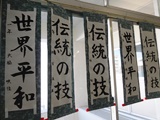 世界平和
伝統の技
伝統の技
伝統の技
世界平和